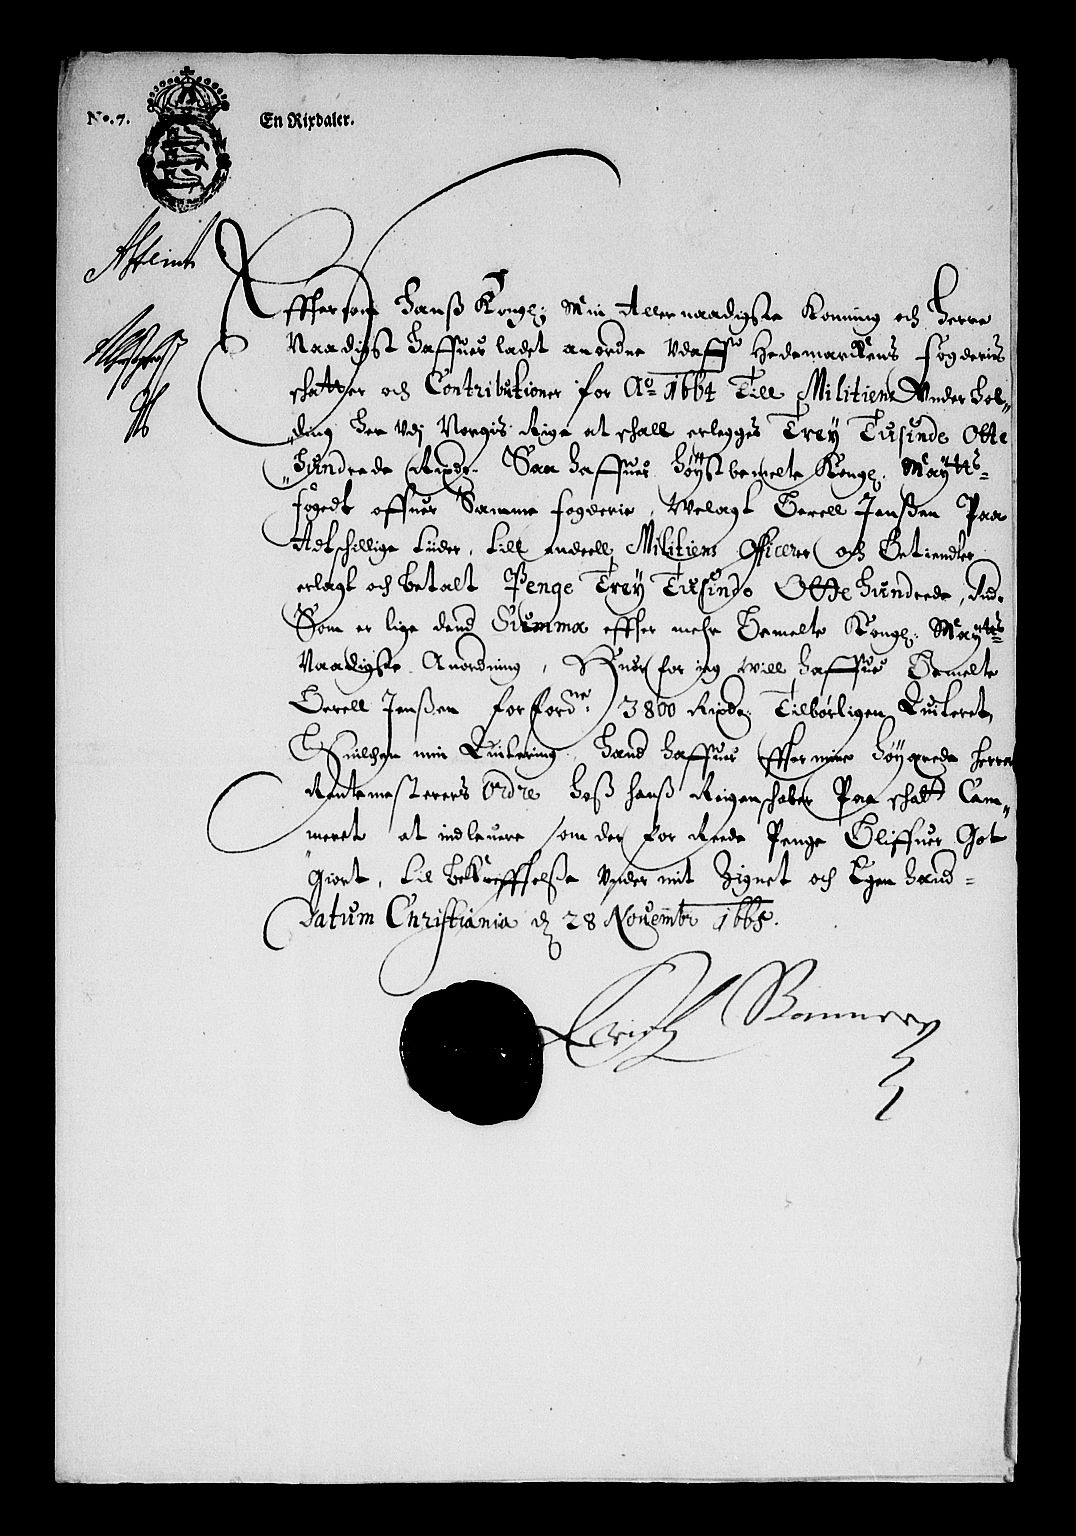 No. 7.
En Rixdaler.
Effterſom Hanß Kongl: Min Allernaadigste Konning och Herre
Naadigst haffuer ladet anordne Udaff Hedemarkens fogderies
schatter och Contributioner for Ao 1664 Till Militiens Underhol-
ding her Udj Norgis Rige at schall erlegges Trey Tusinde Otte
Hundrede Rixdr. Saa haffuer Høystbemelte Kongl: Maytts
fogedt offuer Samme fogderie, Welagt Gerell Jenßen Paa
Adtschillige tüder, till Militiens Officerer och Betiendter
erlagt och betalt Penge Trey Tusinde Otte Hundrede, Rdr.
Som er lige dend Summa effter mehr Bemelte Kongl: Maytts
Naadigste Anordning, Huorfor ieg will haffue Bemelte
Gerell Jenßen for forne 3800 Rixdr. Tilbørligen Quiteret,
Huilchen min Quitering hand haffuer effter mine høyærede herrer
Rentemesterers Ordre hoß hanß Reigenschaber Paa schatt Cam-
meret at indleuere som der for Rede Penge Bliffuer Got
Giort, til bekrefftelße Under mit Zignet och Egen Hand-
Datum Christiania d 28 Novembr 1665.
Erich Banner